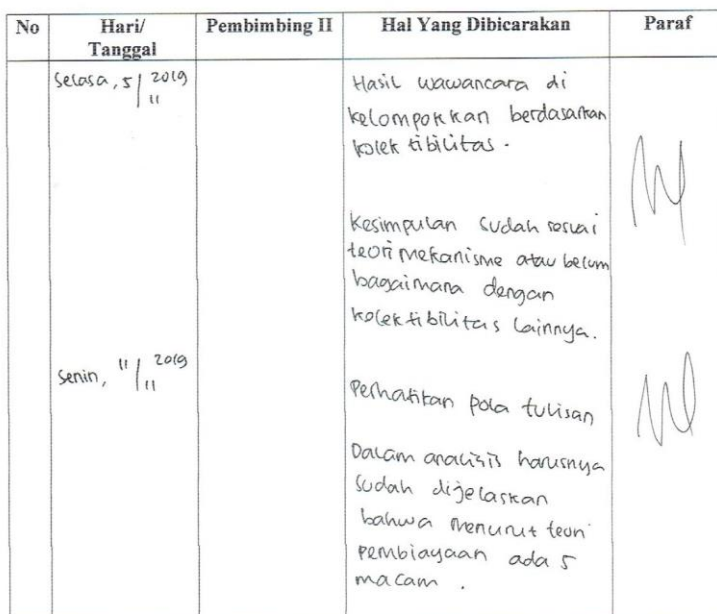 No Hari/ Pembimbing II Hal Yang Dibicarakan Paraf
Tanggal
Selasa, 5/11 2019
Hasil wawancara di
kelompokkan berdasarkan
kolektibilitas.
Kesimpulan sudah sesuai
teori mekanisme atau belum
bagaimana dengan
kolektibilitas lainnya.
Senin, 11/11 2019
Perhatikan pola tulisan
Dalam analisis harusnya
sudah dijelaskan
bahwa menurut teori
pembiayaan ada 5
macam.